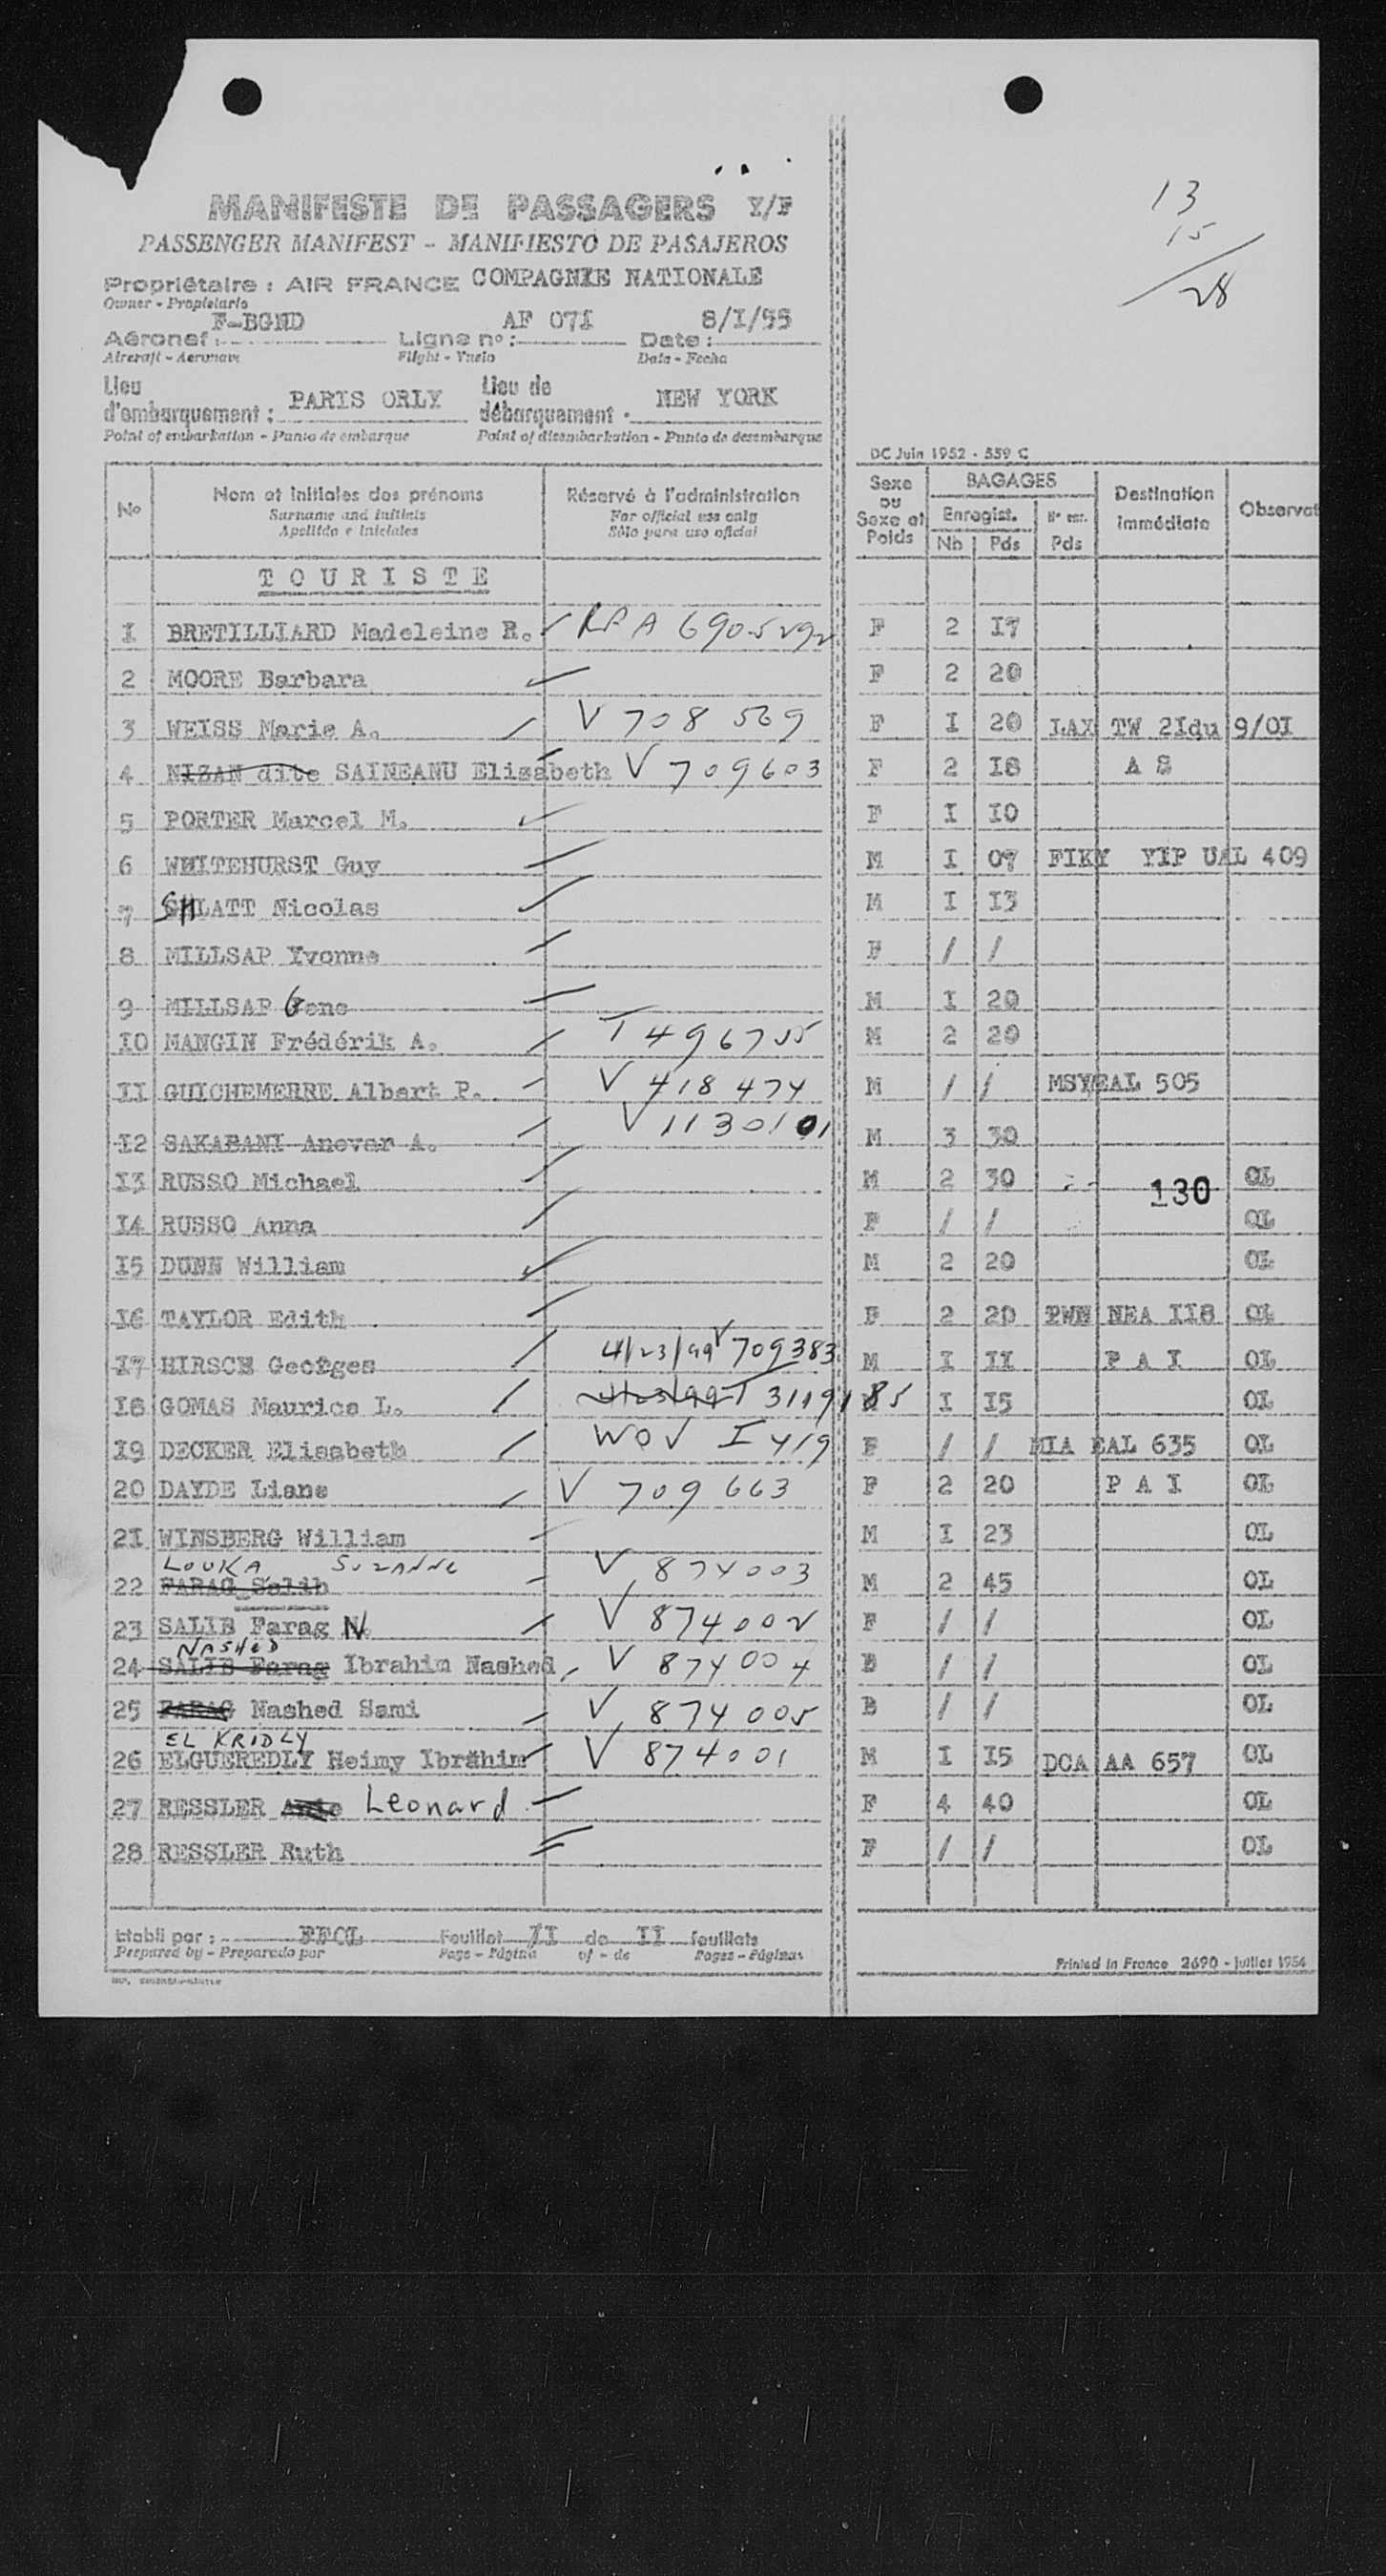 13
15
28
MANIFESTE DE PASSAGERS Y/F
PASSENGER MANIFEST - MANIFIESTO DE PASAJEROS
Propriétaire : AIR FRANCE COMPAGNIE NATIONALE
Owner - Propietario
F-BGND AF 07I 8/I/55
Aéronef : Ligne n° : Date :
Aircraft - Aeronave Flight - Vuelo Data - Fecha
Lieu d'embarquement : PARIS ORLY Lieu de débarquement : NEW YORK
Point of embarkation - Punto de embarque Point of disembarkation - Punto de desembarque
DC Juin 1952 - 559 C
No Nom et initiales des prénoms Réservé à l'administration Sexe ou Sexe et Poids BAGAGES Destination immédiate Observat
Surname and initials For official use only Enregist. N° enr.
Apellido e iniciales Sólo para uso oficial Nb Pds Pds
TOURISTE
I BRETILLIARD Madeleine R. A 6905292 F 2 I7
2 MOORE Barbara F 2 20
3 WEISS Marie A. V 708 569 F I 20 LAX TW 2Idu 9/OI
4 NIZAN dite SAINEANU Elizabeth V 709603 F 2 I8 A S
5 PORTER Marcel M. F I IO
6 WHITEHURST Guy M I 07 FIKY YIP UAL 409
7 SHLATT Nicolas M I I3
8 MILLSAP Yvonne F / /
9 MILLSAP Gene M I 20
IO MANGIN Frédérik A. T 496755 M 2 20
II GUICHEMERRE Albert P. V 418474 M / / MSY EAL 505
I2 SAKABANI Anover A. V 1130101 M 3 30
I3 RUSSO Michael M 2 30 130 OL
I4 RUSSO Anna F / / OL
I5 DUNN William M 2 20 OL
I6 TAYLOR Edith F 2 20 PWM NEA II8 OL
I7 HIRSCH Georges 4/23/99 V 709383 M I II P A I OL
I8 GOMAS Maurice L. 4/23/99 T 3119185 I I5 OL
I9 DECKER Elisabeth WOV I 419 F / / MIA EAL 635 OL
20 DAYDE Liane V 709663 F 2 20 P A I OL
2I WINSBERG William M I 23 OL
LOUKA SUZANNE
22 FARAG Salib V 874003 M 2 45 OL
23 SALIB Farag N. V 874002 F / / OL
NASHED
24 SALIB Farag Ibrahim Nashed V 874004 B / / OL
25 FARAG Nashed Sami V 874005 B / / OL
EL KRIDLY
26 ELGUEREDLY Heimy Ibrahim V 874001 M I I5 DCA AA 657 OL
27 RESSLER Leonard F 4 40 OL
28 RESSLER Ruth F / / OL
Etabli par : Feuillet II de II feuillets
Prepared by - Preparado por Page - Página of - de Pages - Páginas
Printed in France 2690 - juillet 1954